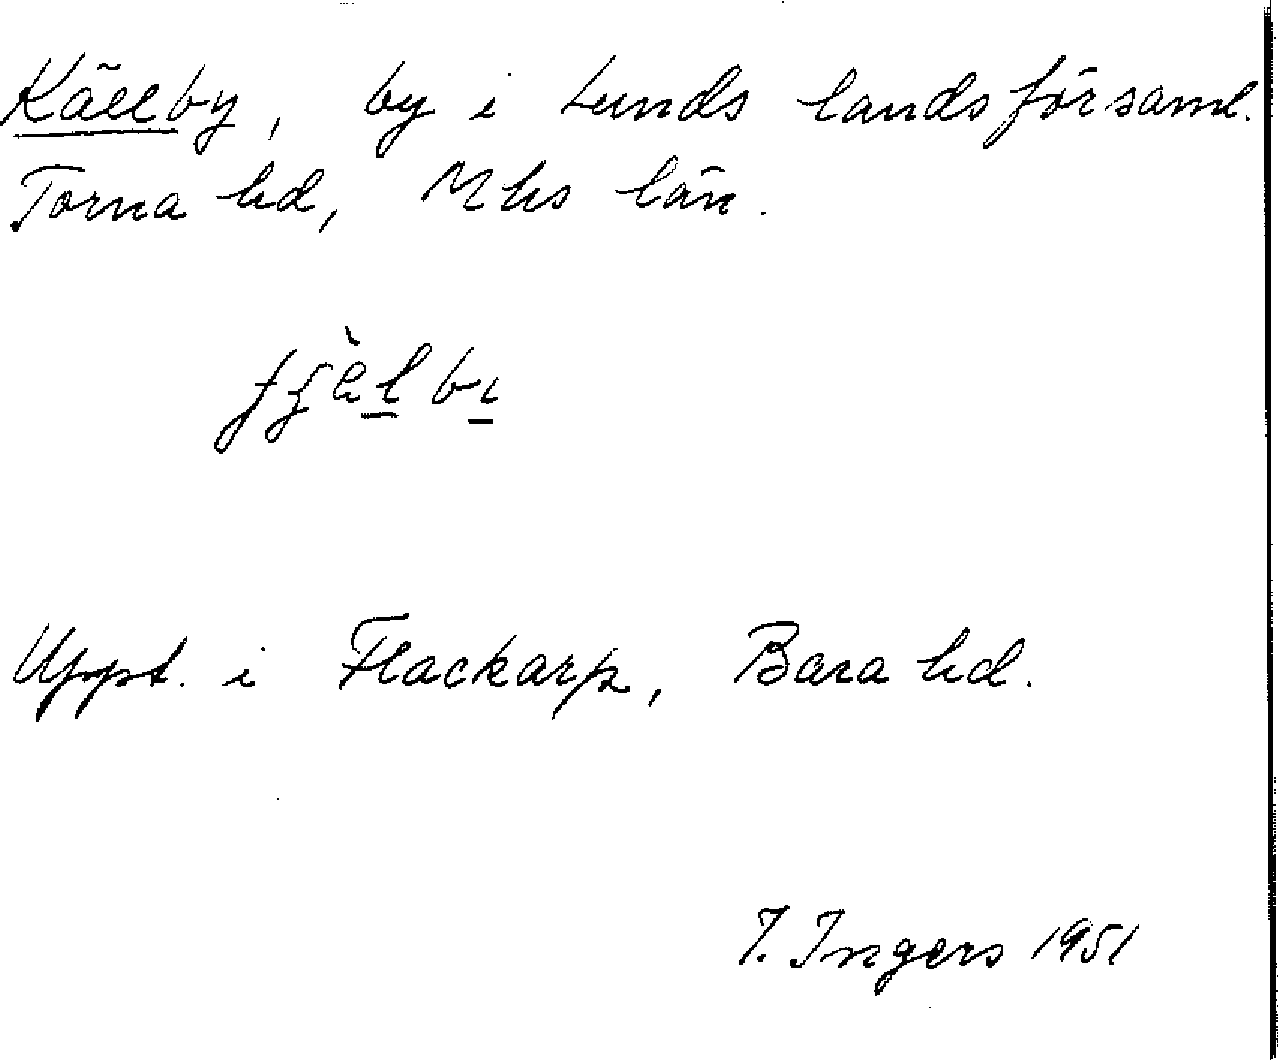 Källby, by i Lunds landsförsaml.
Torna hd, Mhs län.
Uppt. i Flackarp, Bara hd.
I. Ingers 1951